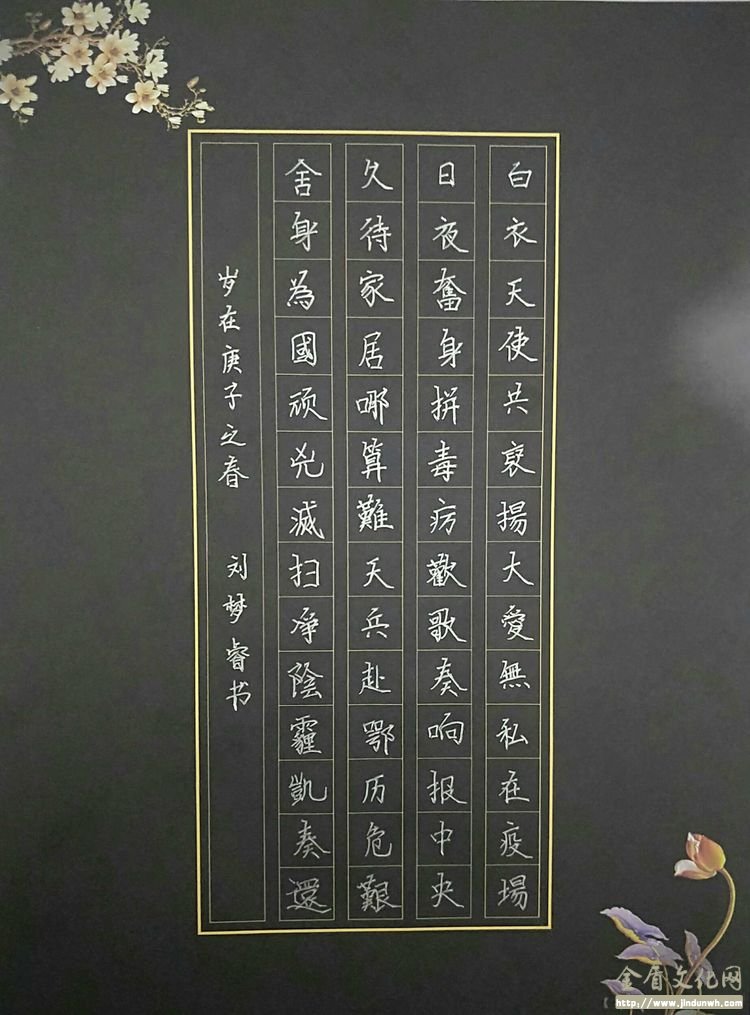 白衣天使共褒揚大愛無私在疫場
日夜奮身拼毒疠歡歌奏响报中央
久待家居哪算難天兵赴鄂历危艱
舍身為國顽兇滅扫净陰霾凱奏還
岁在庚子之春 刘梦睿书
金盾文化网
http://www.jindunwh.com